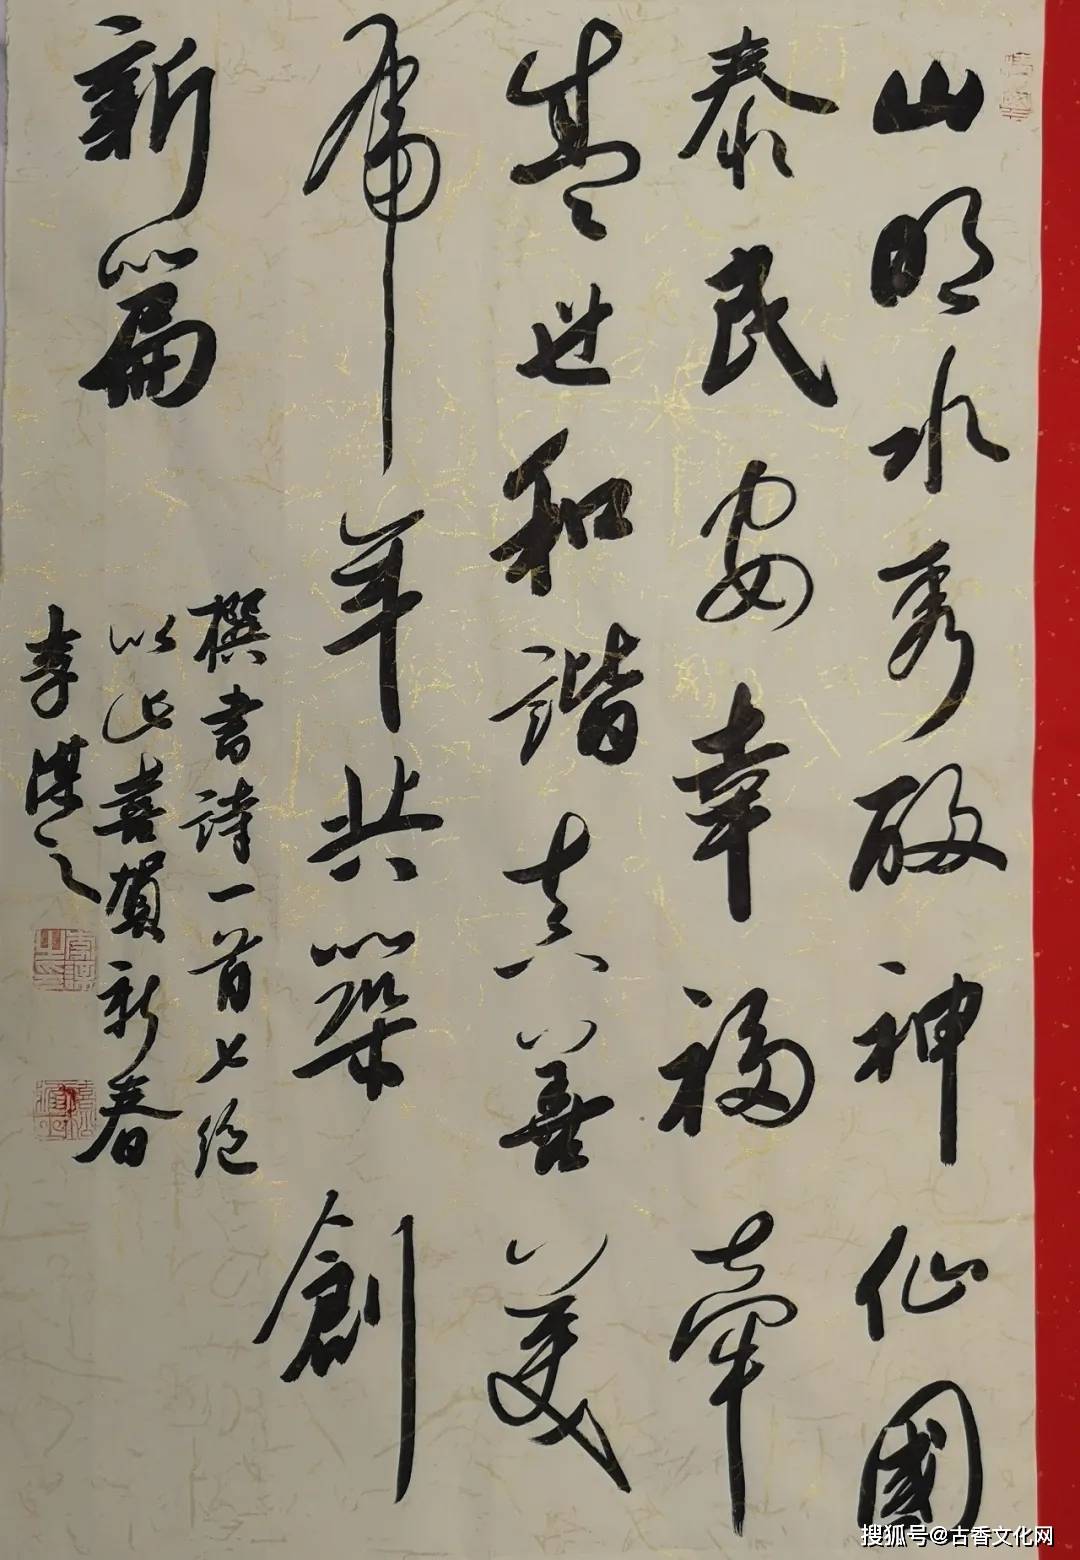 山明水秀醉神仙國
泰民安幸福牽
盛世和諧真善美
虎年共築創
新篇
撰書詩一首七絕
以此喜賀新春
李之
搜狐号@古香文化网